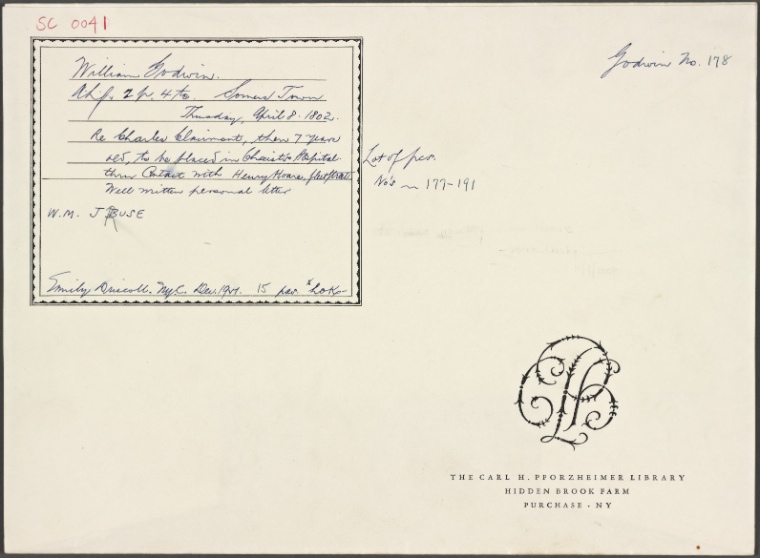 SC 0041
Godwin No. 178
William Godwin.
2 p. 4to. Somers Town
Thursday, April 8. 1802.
Re Charles Clairmont, then 7 years
old, to be placed in Christ's Hospital
thru Contact with Henry Hoare, Fleet Street
Well written personal letter
W.M. J RUSE
Emily Driscoll. NYC. Dec. 15 pcs.
Lot of pcs.
No's 177-191
THE CARL H. PFORZHEIMER LIBRARY
HIDDEN BROOK FARM
PURCHASE · NY